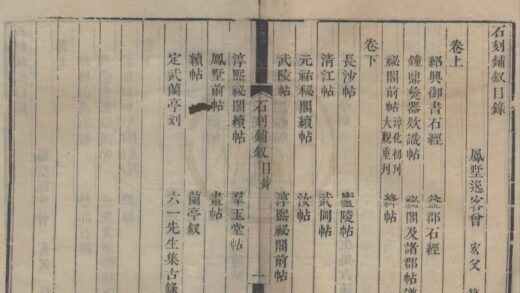 石刻鋪叙目錄
鳳墅逸客曾宏父
卷上
紹興御書石經 益郡石經
鐘鼎彝器款識帖 祕閣及諸郡帖
祕閣前帖 淳化初刋 大觀重刋 絳帖
卷下
長沙帖 廬陵帖
清江帖 武岡帖
元祐祕閣續帖 汝帖
武陵帖 淳熙祕閣前帖
石刻鋪叙 目錄 一
淳熙祕閣續帖 羣玉堂帖
鳳墅前帖 畫帖
續帖 蘭亭叙
定武蘭亭刻 六一先生集古錄